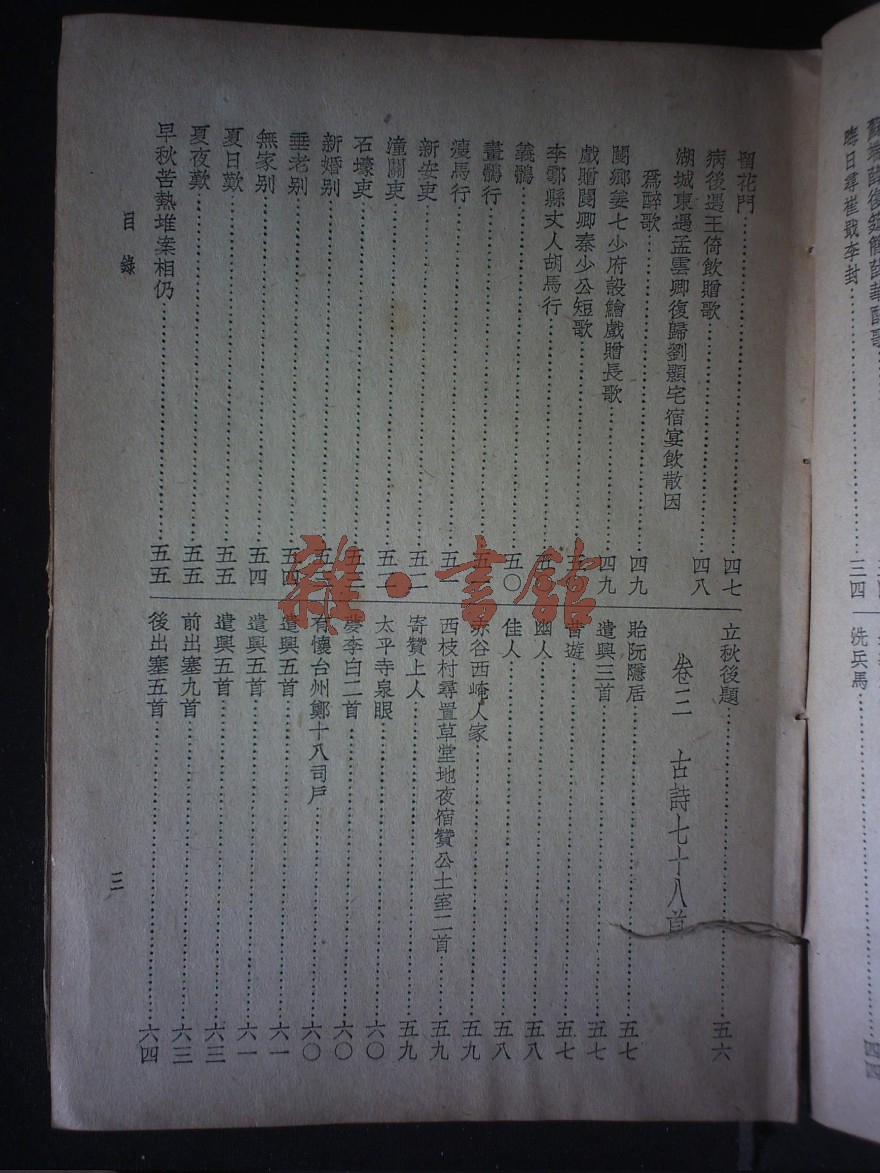 晦日尋崔戢李封……三四
洗兵馬……四四
留花門……四七
病後過王倚飲贈歌……四八
湖城東遇孟雲卿復歸劉顥宅宿宴飲散因
爲醉歌……四九
閿鄉姜七少府設鱠戲贈長歌……四九
戲贈閿鄉秦少公短歌……五
李鄠縣丈人胡馬行……五
義鶻……五〇
畫鶻行……五
瘦馬行……五
新安吏……五二
潼關吏……五二
石壕吏……五三
新婚別……五三
垂老別……五四
無家別……五四
夏日歎……五五
夏夜歎……五五
早秋苦熱堆案相仍……五五
立秋後題……五六
卷三 古詩七十八首
貽阮隱居……五七
遣興三首……五七
昔遊……五七
幽人……五八
佳人……五八
赤谷西崦人家……五九
西枝村尋置草堂地夜宿贊公土室二首……五九
寄贊上人……五九
太平寺泉眼……六〇
夢李白二首……六〇
有懷台州鄭十八司戶……六〇
遣興五首……六一
遣興五首……六一
遣興五首……六三
前出塞九首……六三
後出塞五首……六四
目錄
三
雜·書館